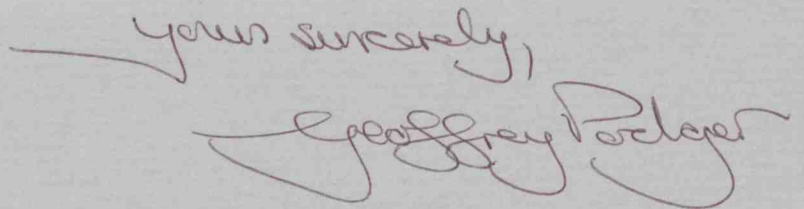 yours sincerely,
Geoffrey Podger